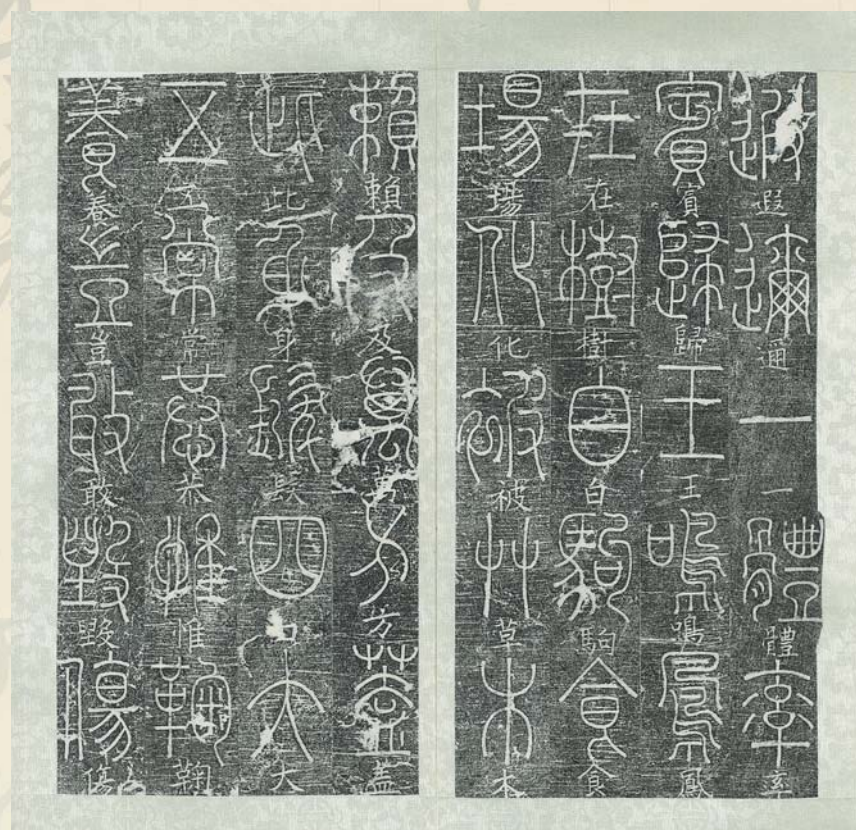 遐邇一體率
賓歸王鳴鳳
在樹白駒食
場化被草木
賴及萬方蓋
此身髮四大
五常恭惟鞠
養豈敢毀傷